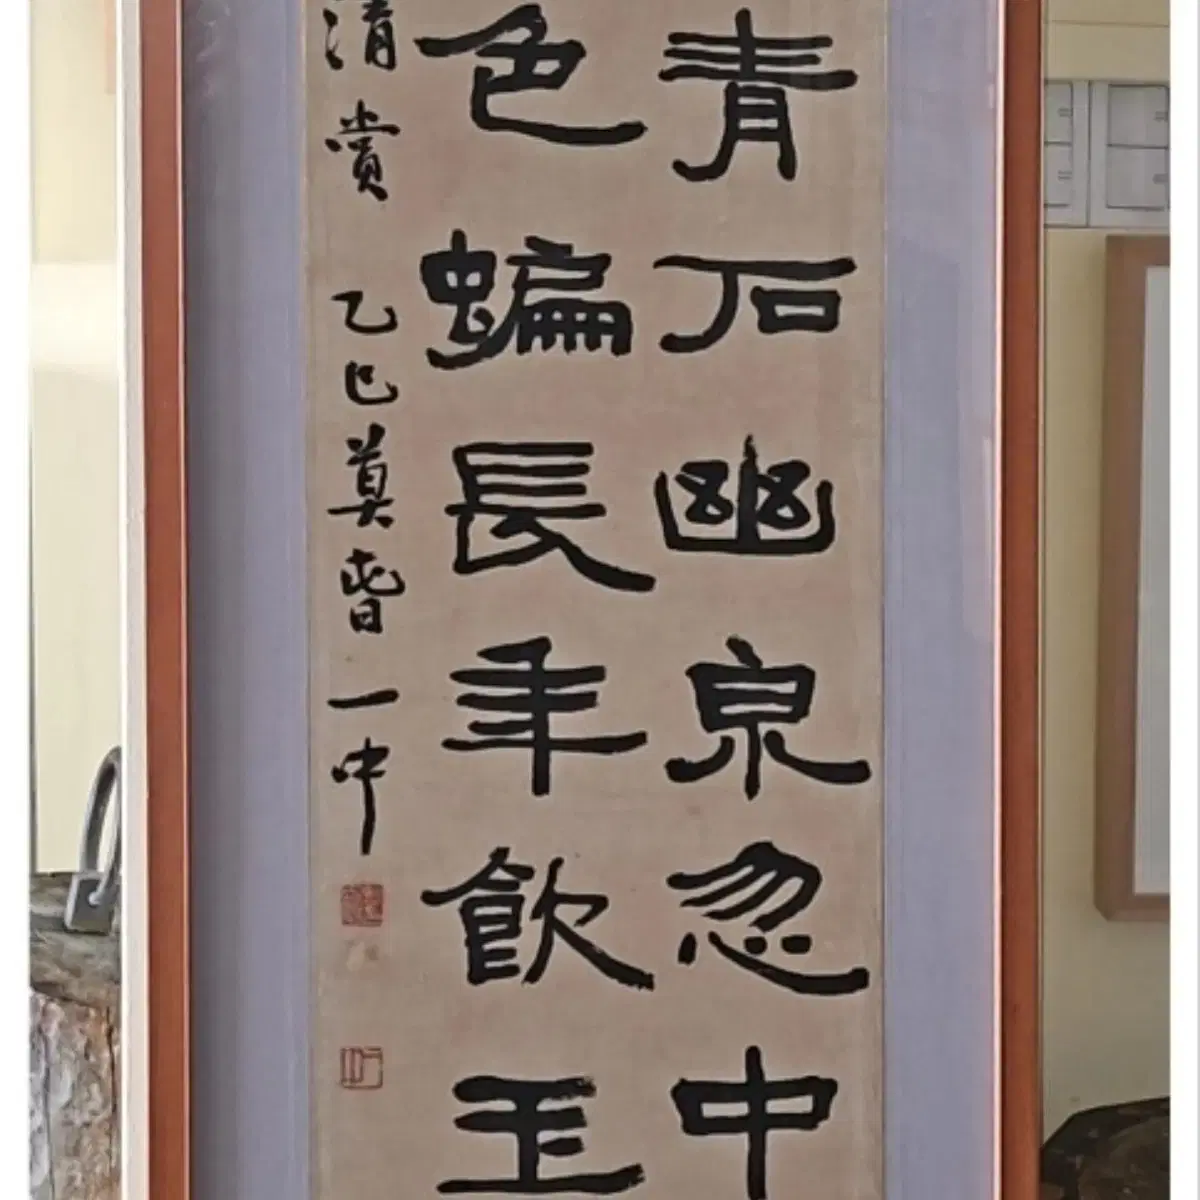 青石幽泉忽中
色蝙長年飲玉
清賞 乙巳莫旾 一中